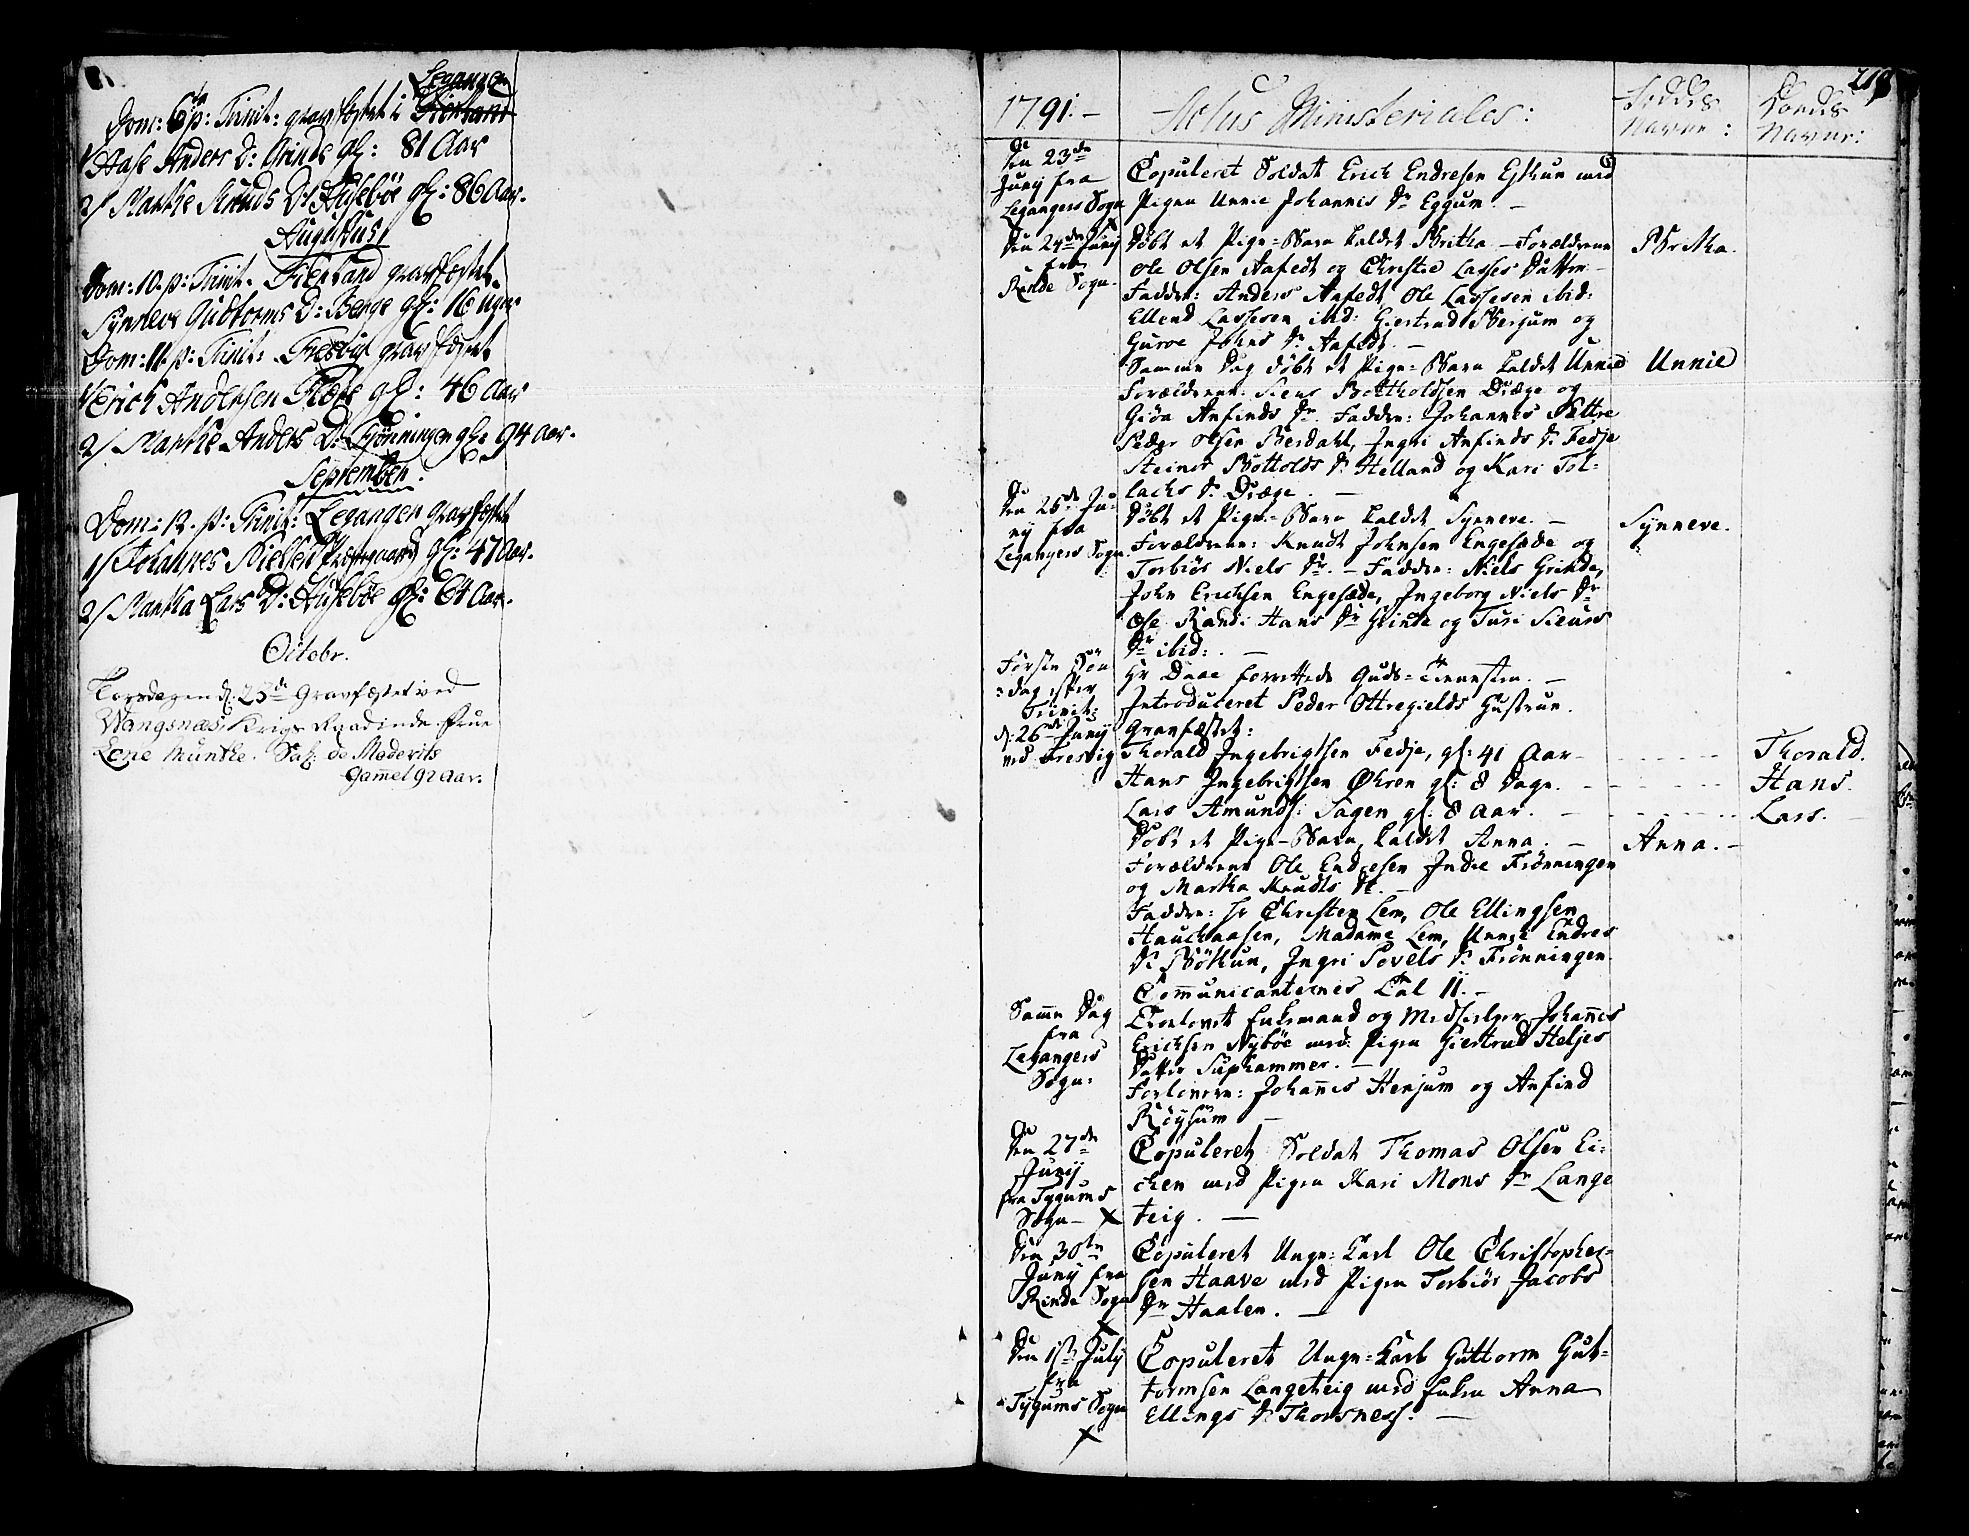 Leganger
Dom: 6 p: Trinit: gravfæstet i Fierland
1/ Aase Anders D: Grinde gl: 81 Aar
2/ Marthe Knuds D: Husebÿe gl: 86 Aar.
Augustus
Dom: 10. p: Trinit. Fierland gravfæstet
Synneve Gudtorms D: Berge gl: 16 uger
Dom: 11. p: Trinit: Fresvig gravfæstet
1/ Erich Andersen gl: 46 Aar
2/ Marthe Anders D: Frönningen gl: 94 Aar.
September.
Dom: 12. p: Trinit: Leganger gravfæstet
1/ Johannes Nielsen Prestegaard gl: 47 Aar.
2/ Martha Lars D: Husebÿe gl: 64 Aar.
Octobr.
Torsdagen d: 25de Gravfæstet ved
Wangsnæs Krigs Raadinde Frue
Lene Munthe. Sal: de Moderits
gamel 92 Aar.
219
1791. Actus Ministeriales:
Födde Navne:
Döde Navne:
Den 23de Junÿ fra Legangers Sogn
Copuleret Soldat Erich Endresen Eskun med
Pigen Unnie Johannis Dr Eggum. —
Den 24de Junÿ fra Rinde Sogn.
Döbt et Pige-Barn kaldet Britha. — Forældrene Britha.
Ole Olsen Aafedt og Christie Lasses Datter —
Faddere: Anders Aafedt, Ole Lassesen ibid:
Ellend Lassesen ibid: Giertrud Bergum og
Guroe Johns Dr Aafedt. —
Samme Dag döbt et Pige-Barn kaldet Unnie Unnie
Forældrene: Siens Bottholdsen Dræge og
Giöa Anfinds Dr. Faddere: Johannes Sættre
Peder Olsen Berdahl, Ingri Anfinds Dr Fedje
Steinar Bottolds Dr Helland og Kari Tol-
lachs Dr Dræge. —
Den 26de Junÿ fra Legangers Sogn
Döbt et Pige-Barn kaldet Synneve. — Synneve.
Forældrene: Knudt Johnsen Engesæde og
Torbiör Niels Dr. — Faddere: Niels Grinde,
John Erichsen Engesæde, Ingeborg Niels Dr
Ose Randi Hans Dr Grinde og Turi Sieurs
Dr ibid: —
Förste Sön-
dag efter
Trinit:
Hr Daae forrettede Guds-Tienesten. —
Introduceret Peder Ottregields Hustrue.
d: 26de Junÿ
ved Fresvig
Gravfæstet:
Thorald Ingebrigtsen Fedje, gl: 41 Aar — Thorald.
Hans Ingebrigtsen Öhren gl: 8 Dage. Hans.
Lars Amunds: Sagen gl: 8 Aar. Lars.
Döbt et Pige-Barn, kaldet Anna. — Anna. —
Forældrene Ole Endresen Indre Frönningen
og Martha Knudts Dr. —
Faddere: Hr Christen Lem, Ole Ellingsen
Hauchaasen, Madame Lem, Unnie Endres
Dr Böthun, Ingri Povels Dr Frönningen.
Communicanternes Tal 11. —
Samme Dag
fra
Legangers
Sogn:
Trolovet Enkemand og Medhielper Johannes
Erichsen Nÿböe med Pigen Giertrud Heljes
Datter Suphammer. —
Forlovere: Johannes Henjum og Anfind
Röÿsüm —
Den 27de
Junÿ
fra Tygums
Sogn — X
Copuleret Soldat Thomas Olsen Ei-
chen med Pigen Kari Mons Dr Lange
teig. —
Den 30te
Junÿ fra
Rinde Sogn
X
Copuleret Unge-Karl Ole Christopher-
sen Haave med Pigen Torbiör Jacobs
Dr Haalen. —
Den 1ste July
fra
Tygums Sogn
X
Copuleret Unge-Karl Guttorm Gut-
tormsen Langeteig med Enken Anna
Ellings Dr Thorsness. —